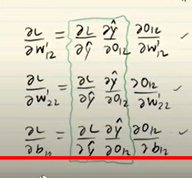 ∂L/∂w'₁₂ = ∂L/∂ŷ ∂ŷ/∂O₁₂ ∂O₁₂/∂w'₁₂ ✓
∂L/∂w'₂₂ = ∂L/∂ŷ ∂ŷ/∂O₁₂ ∂O₁₂/∂w'₂₂ ✓
∂L/∂b₁₂ = ∂L/∂ŷ ∂ŷ/∂O₁₂ ∂O₁₂/∂b₁₂ ✓